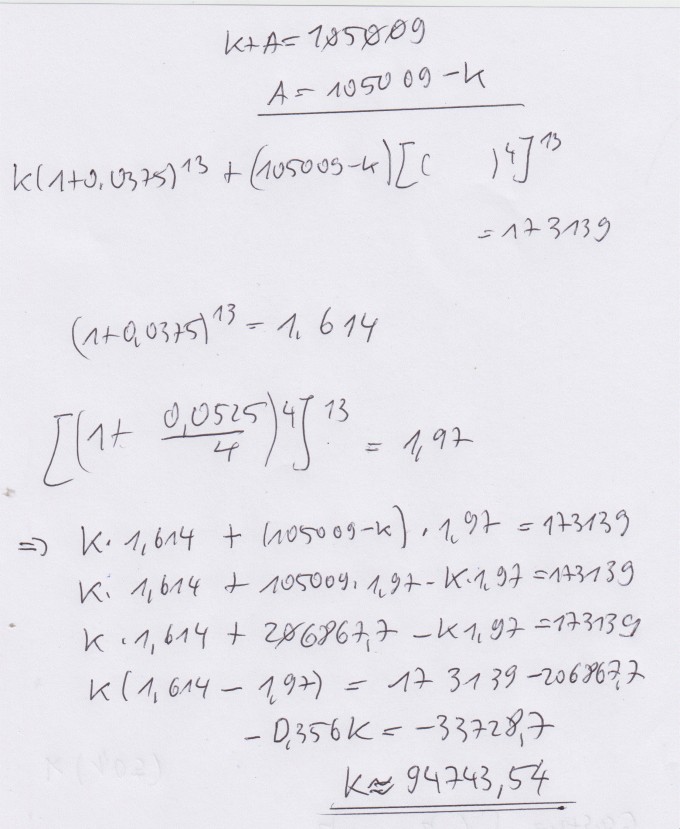 K+A=105009
A=105009-K
K(1+0,0375)^13 + (105009-K)[( )^4]^13
=173139
(1+0,0375)^13 = 1.614
[(1+ 0,0525/4)^4]^13 = 1,97
=> K. 1,614 + (105009-K). 1,97 = 173139
K. 1,614 + 105009. 1,97 - K.1,97 = 173139
K . 1,614 + 206867,7 - K1,97 = 173139
K(1,614 - 1,97) = 173139 - 206867,7
- 0,356K = -33728,7
K≈ 94743,54